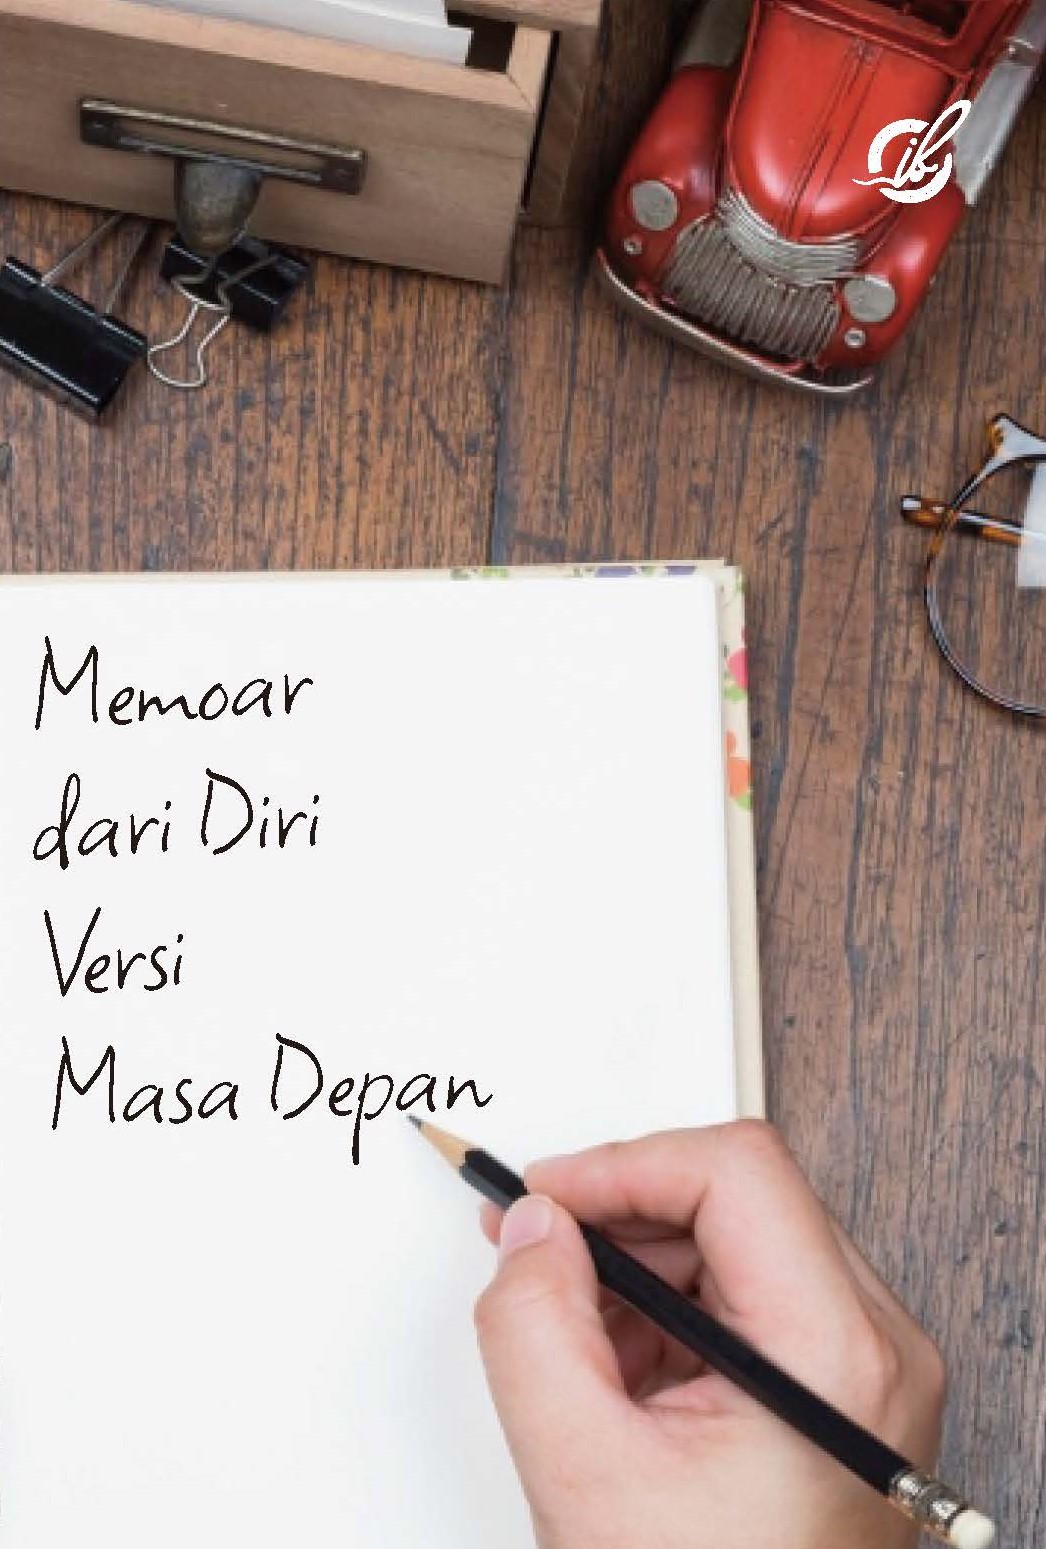 ib
Memoar
dari Diri
Versi
Masa Depan